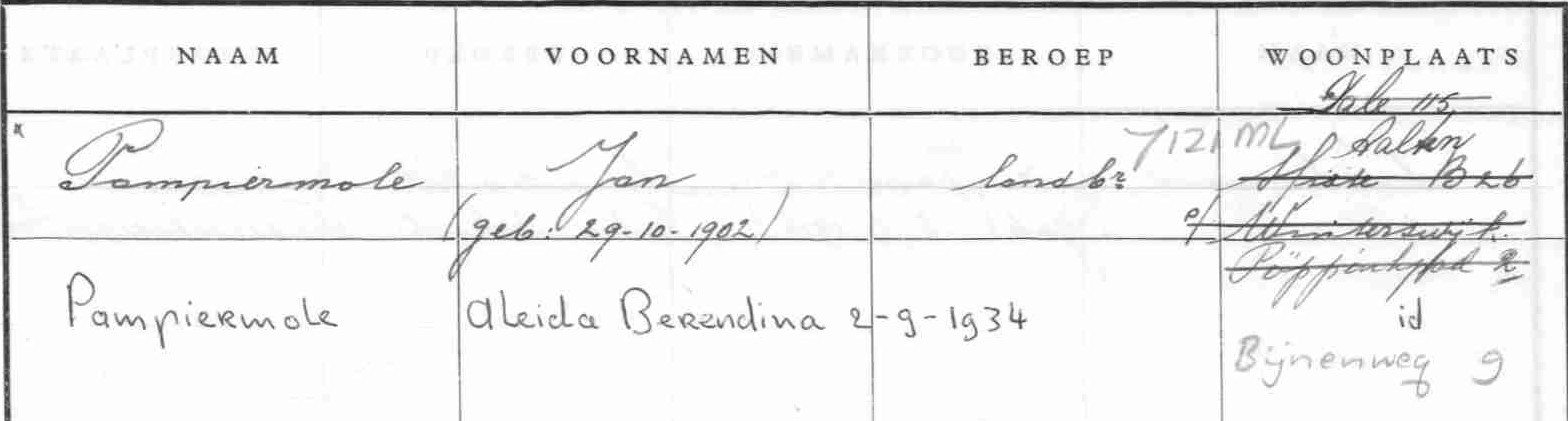 NAAM VOORNAMEN BEROEP WOONPLAATS
Dale 115
7121 ML Aalten
Pampiermole Jan landbr B 26
(geb: 29-10-1902) Winterswijk
Pöppinkpad 2
Pampiermole Aleida Berendina 2-9-1934 id
Bijnenweg 9